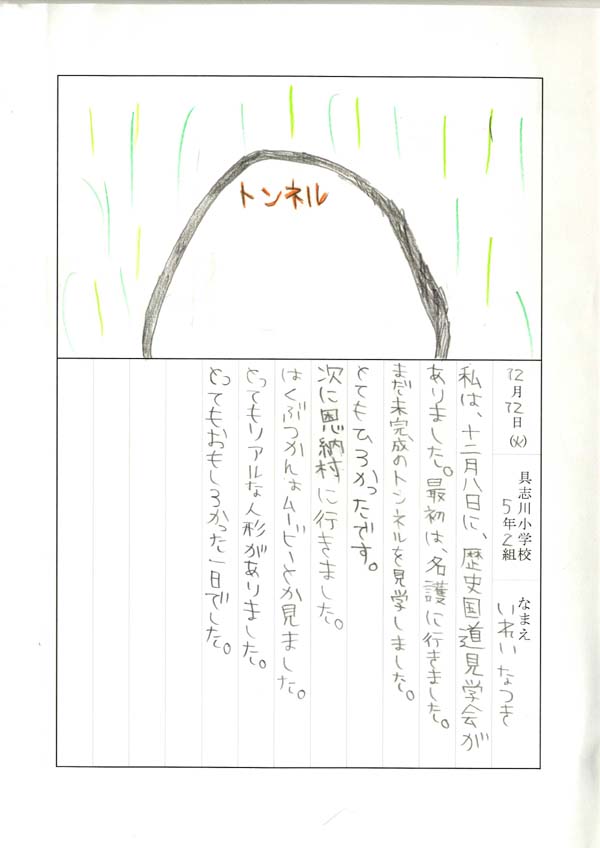 トンネル
12月12日(火) 具志川小学校5年2組 なまえ いれいなつき
私は、十二月八日に、歴史国道見学会が
ありました。最初は、名護に行きました。
まだ未完成のトンネルを見学しました。
とてもひろかったです。
次に恩納村に行きました。
はくぶつかんはムービーとか見ました。
とってもリアルな人形がありました。
とってもおもしろかった一日でした。